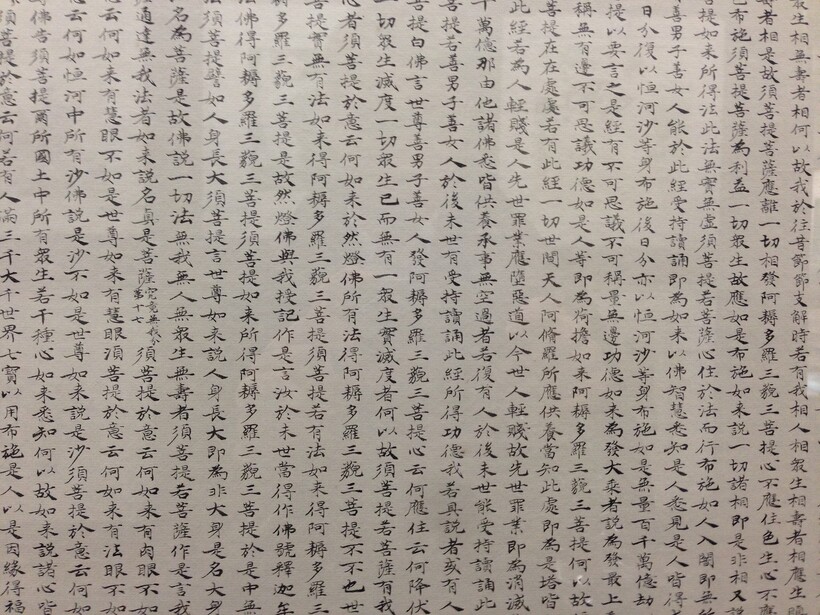 眾生相無壽者相何以故我於往昔節節支解時若有我相人相眾生相壽者相應生瞋
壽者相是故須菩提菩薩應離一切相發阿耨多羅三藐三菩提心不應住色生心不應
色布施須菩提菩薩為利益一切眾生故應如是布施如来說一切諸相即是非相又說
菩提如来所得法此法無實無虛須菩提若菩薩心住於法而行布施如人入闇即無所
善男子善女人能於此經受持讀誦即為如来以佛智慧悉知是人悉見是人皆得
日分復以恒河沙等身布施後日分亦以恒河沙等身布施如是無量百千萬億劫
提以要言之是經有不可思議不可稱量無邊功德如来為發大乘者說為發最上
稱無有邊不可思議功德如是人等即為荷擔如来阿耨多羅三藐三菩提何以故
菩提在在處處若有此經一切世間天人阿脩羅所應供養當知此處即為是塔皆
此經若為人輕賤是人先世罪業應墮惡道以今世人輕賤故先世罪業即為消滅
千萬億那由他諸佛悉皆供養承事無空過者若復有人於後末世能受持讀誦此
菩提若善男子善女人於後末世有受持讀誦此經所得功德我若具說者或有人
菩提白佛言世尊善男子善女人發阿耨多羅三藐三菩提心云何應住云何降伏
一切眾生滅度一切眾生已而無有一眾生實滅度者何以故須菩提若菩薩有我
心者須菩提於意云何如来於然燈佛所有法得阿耨多羅三藐三菩提不不也世
菩提實無有法如来得阿耨多羅三藐三菩提須菩提若有法如来得阿耨多羅三
耨多羅三藐三菩提是故然燈佛與我授記作是言汝於来世當得作佛號釋迦牟
法佛得阿耨多羅三藐三菩提須菩提如来所得阿耨多羅三藐三菩提於是中無
法須菩提譬如人身長大須菩提言世尊如来說人身長大即為非大身是名大身
名為菩薩是故佛說一切法無我無人無眾生無壽者須菩提若菩薩作是言我
通達無我法者如来說名真是菩薩究竟無我分第十七須菩提於意云何如来有肉眼不如
云何如来有慧眼不如是世尊如来有慧眼須菩提於意云何如来有法眼不如
意云何如恒河中所有沙佛說是沙不如是世尊如来說是沙須菩提於意云何如
佛告須菩提爾所國土中所有眾生若干種心如来悉知何以故如来說諸心皆
須菩提於意云何若有人滿三千大千世界七寶以用布施是人以是因緣得福